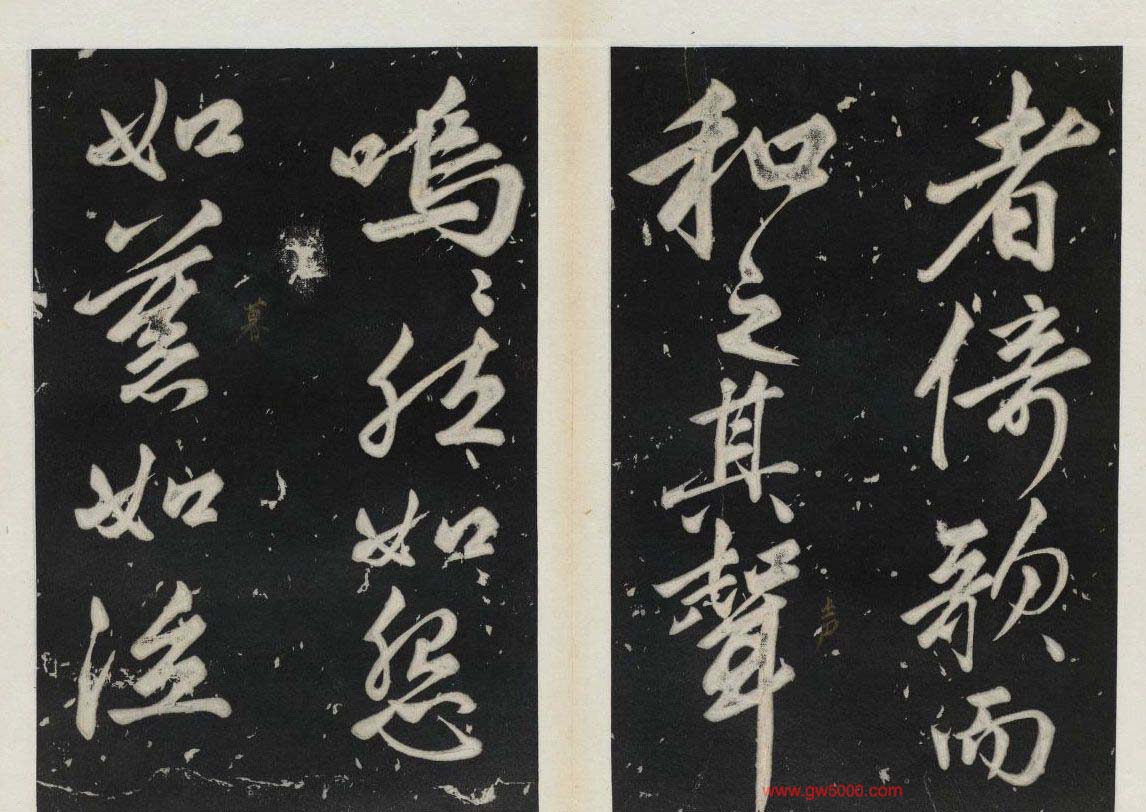 者倚歌而
和之其聲
声
嗚〻然如怨
如慕如泣
慕
www.gw5000.com